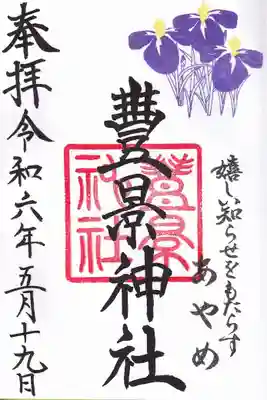 奉拝
令和六年五月十九日
豊景神社
豊景神社
嬉しい知らせをもたらす
あやめ